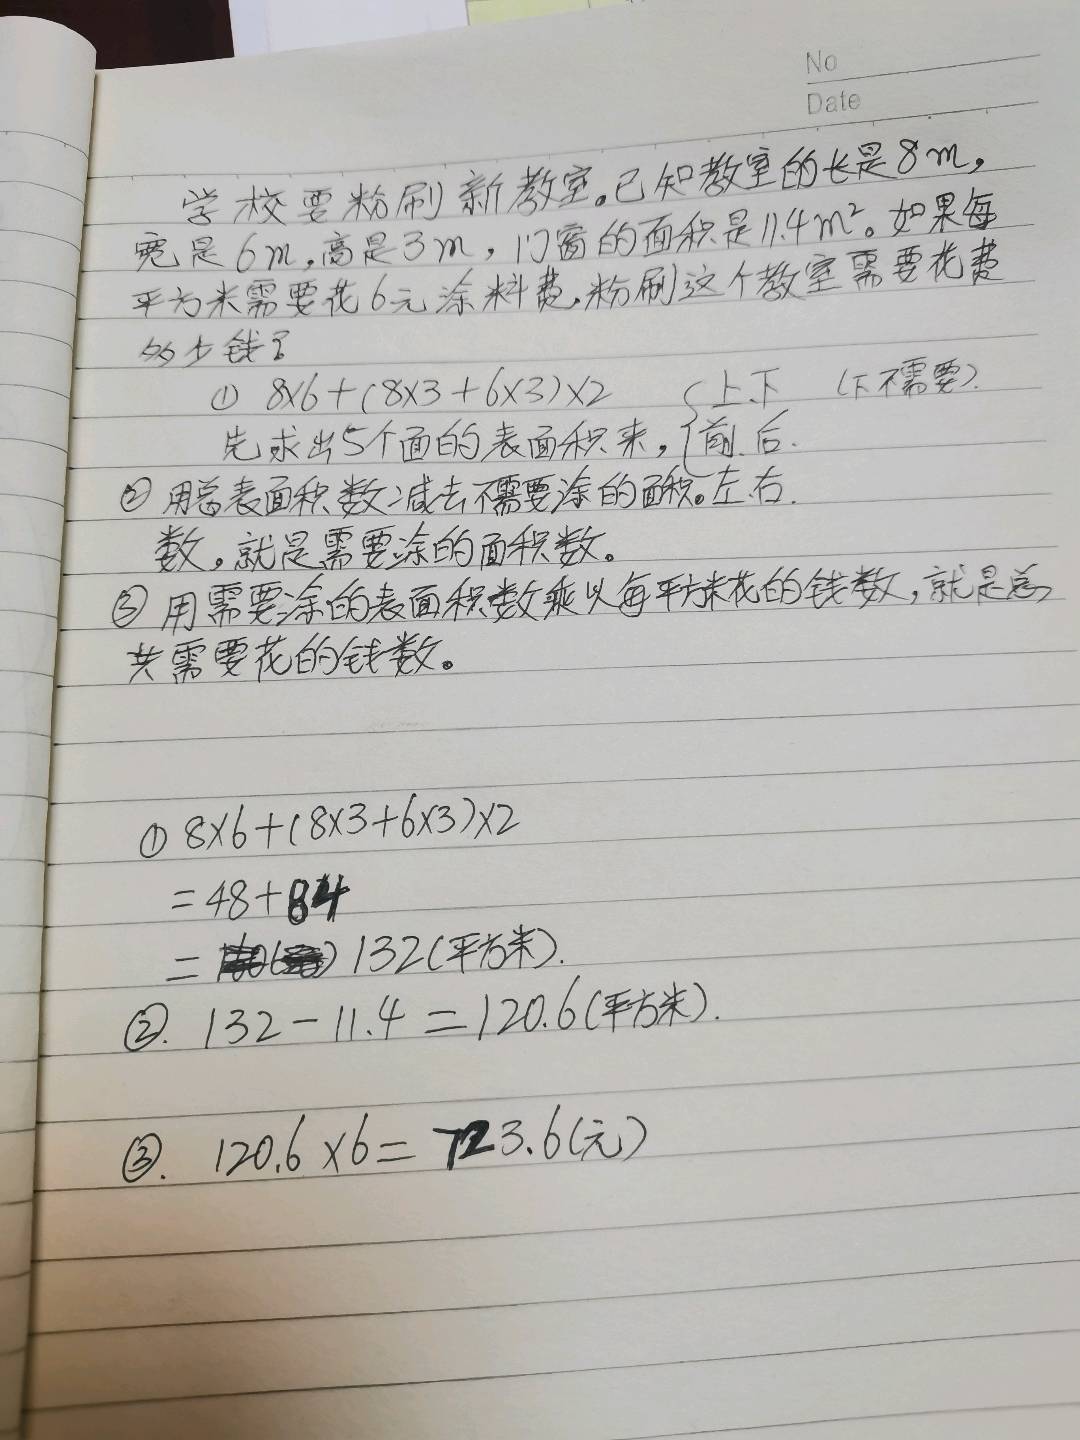 No
Date
学校要粉刷新教室。已知教室的长是8m,
宽是6m,高是3m,门窗的面积是11.4m²。如果每
平方米需要花6元涂料费,粉刷这个教室需要花费
多少钱?
① 8×6+(8×3+6×3)×2 { 上.下 (下不需要).
先求出5个面的表面积来, 前.后.
② 用总表面积数减去不需要涂的面积。左.右.
数。就是需要涂的面积数。
③ 用需要涂的表面积数乘以每平方米花的钱数,就是总
共需要花的钱数。
① 8×6+(8×3+6×3)×2
=48+84
= 132(平方米).
②. 132-11.4=120.6(平方米).
③. 120.6×6=723.6(元)